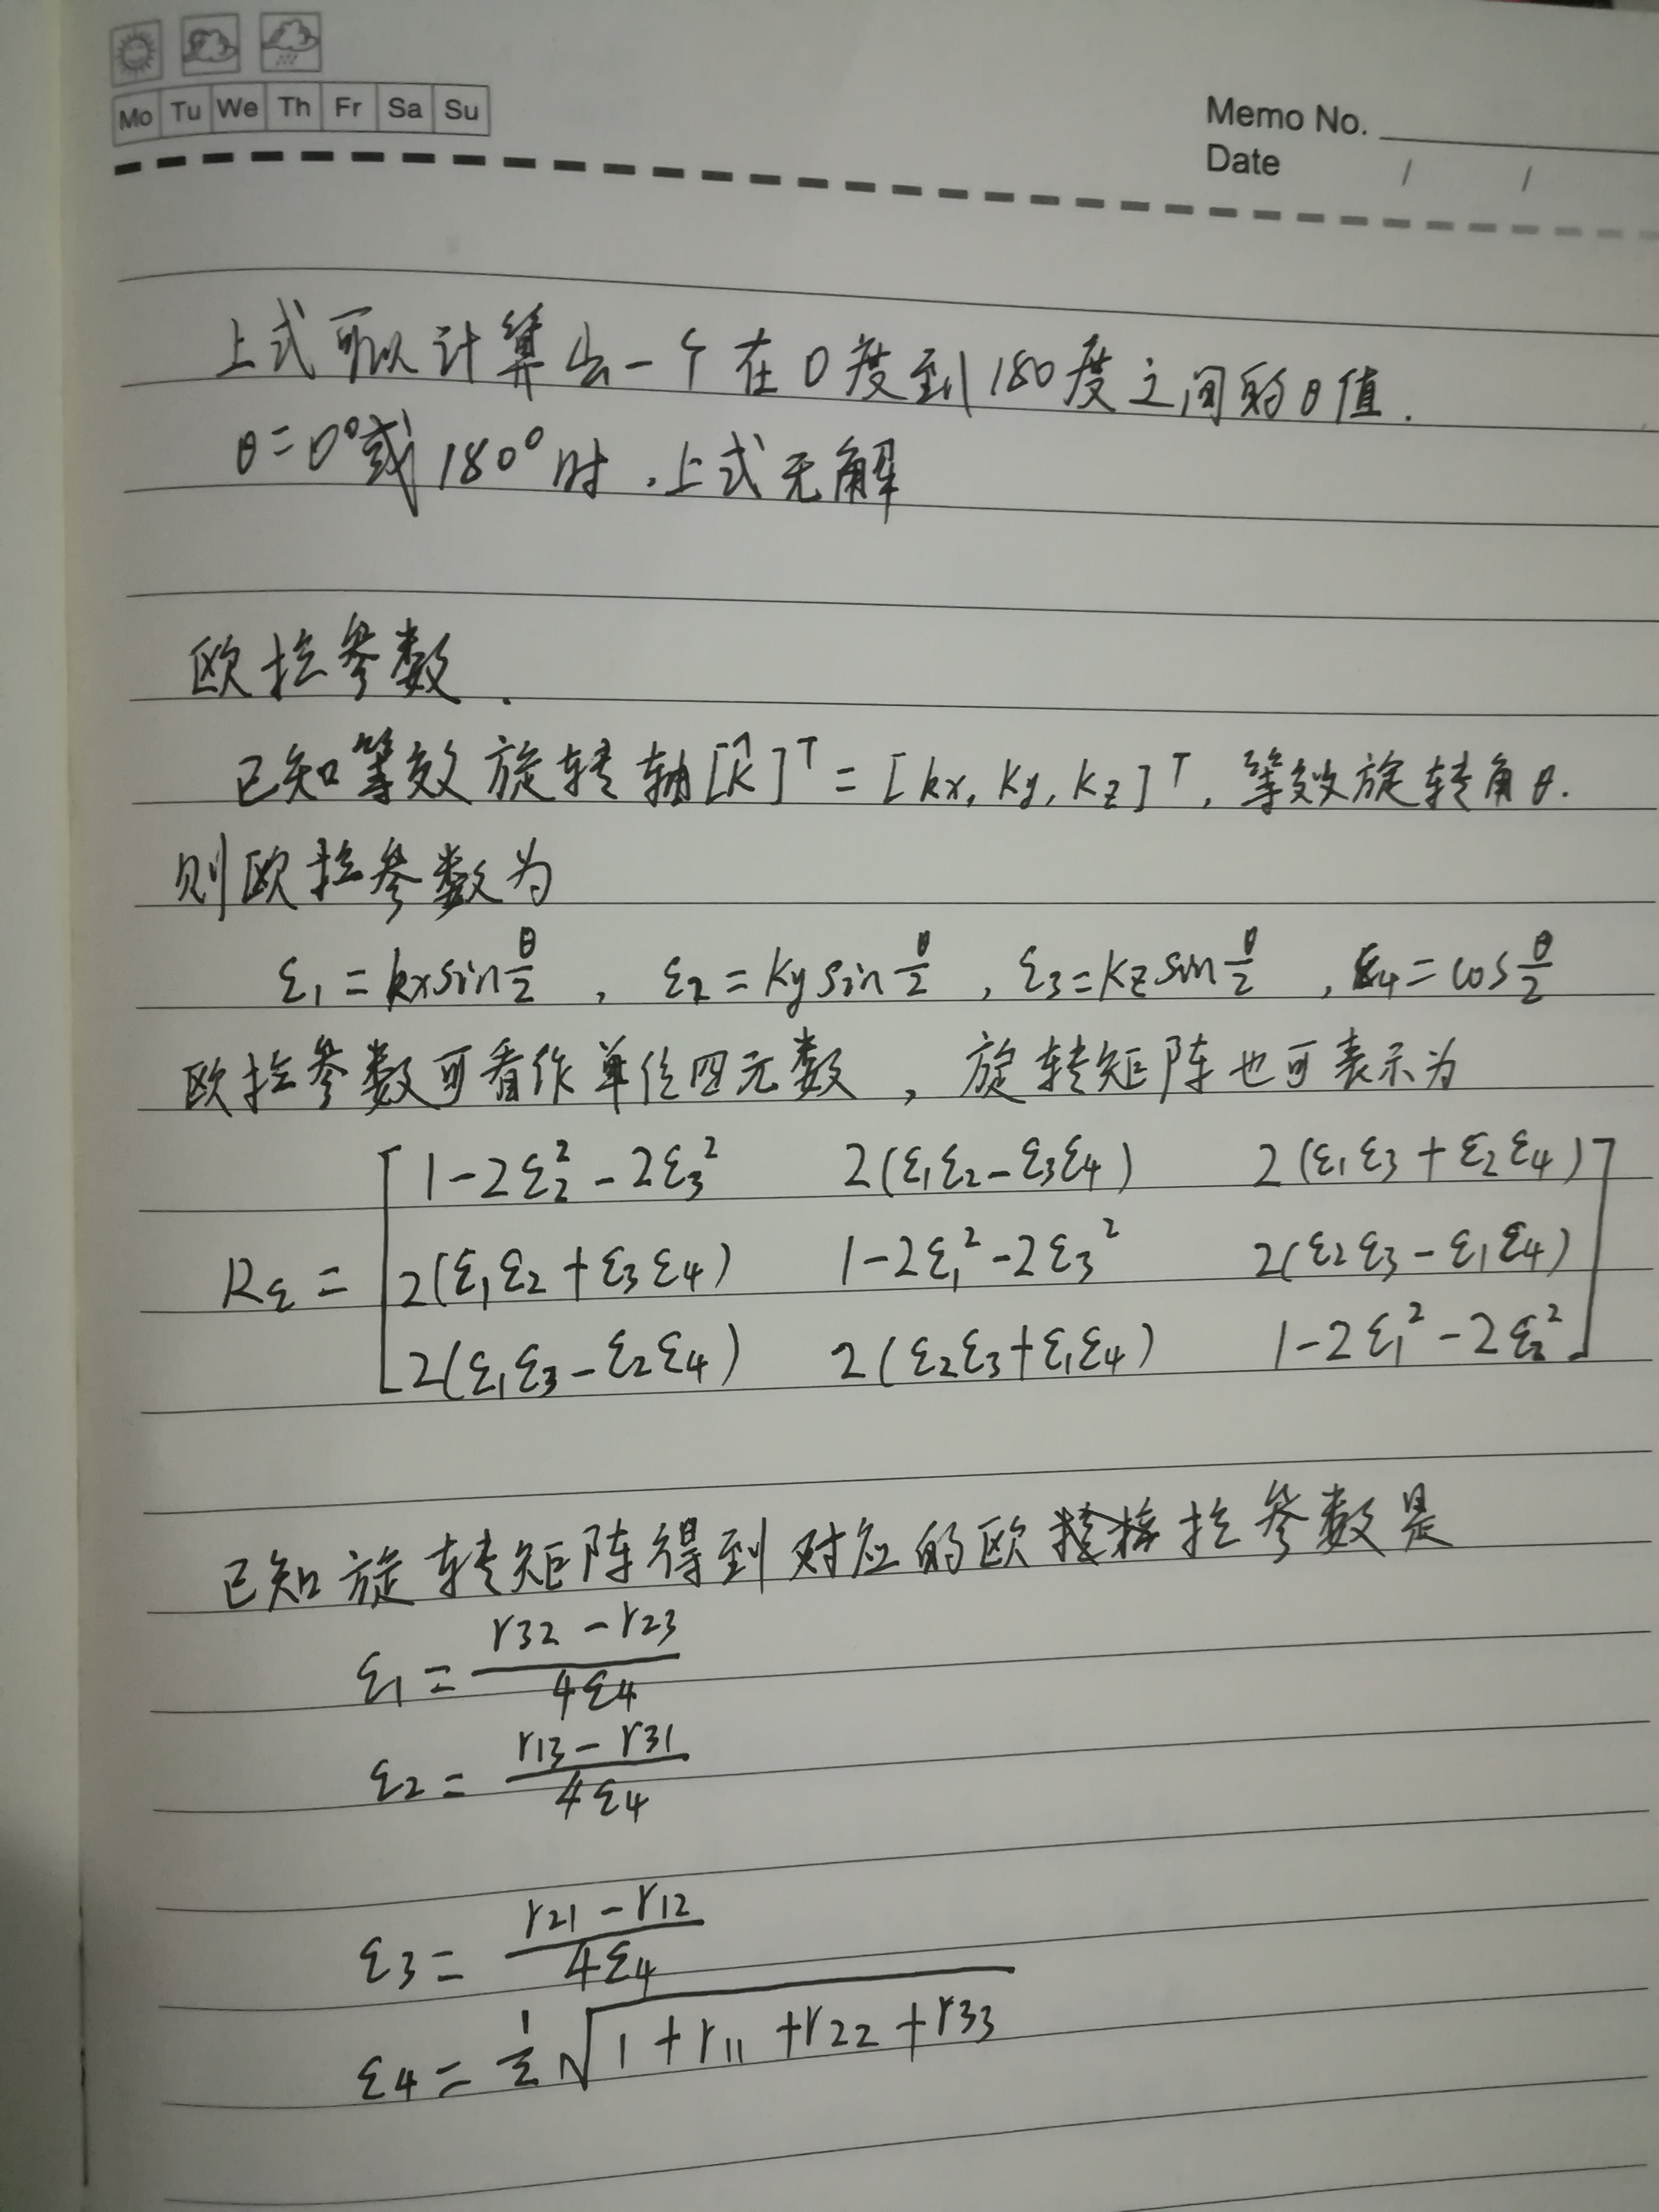 Mo Tu We Th Fr Sa Su
Memo No.
Date / /
上式可以计算出一个在0度到180度之间的θ值.
θ=0°或180°时,上式无解
欧拉参数.
已知等效旋转轴[k̂]ᵀ=[kx, ky, kz]ᵀ, 等效旋转角θ.
则欧拉参数为
ε₁=kx sin θ/2, ε₂=ky sin θ/2, ε₃=kz sin θ/2, ε₄=cos θ/2
欧拉参数可看作单位四元数, 旋转矩阵也可表示为
Rε = [ 1-2ε₂²-2ε₃² 2(ε₁ε₂-ε₃ε₄) 2(ε₁ε₃+ε₂ε₄)
2(ε₁ε₂+ε₃ε₄) 1-2ε₁²-2ε₃² 2(ε₂ε₃-ε₁ε₄)
2(ε₁ε₃-ε₂ε₄) 2(ε₂ε₃+ε₁ε₄) 1-2ε₁²-2ε₂² ]
已知旋转矩阵得到对应的欧拉参数是
ε₁ = (r₃₂-r₂₃)/4ε₄
ε₂ = (r₁₃-r₃₁)/4ε₄
ε₃ = (r₂₁-r₁₂)/4ε₄
ε₄ = ½√(1+r₁₁+r₂₂+r₃₃)